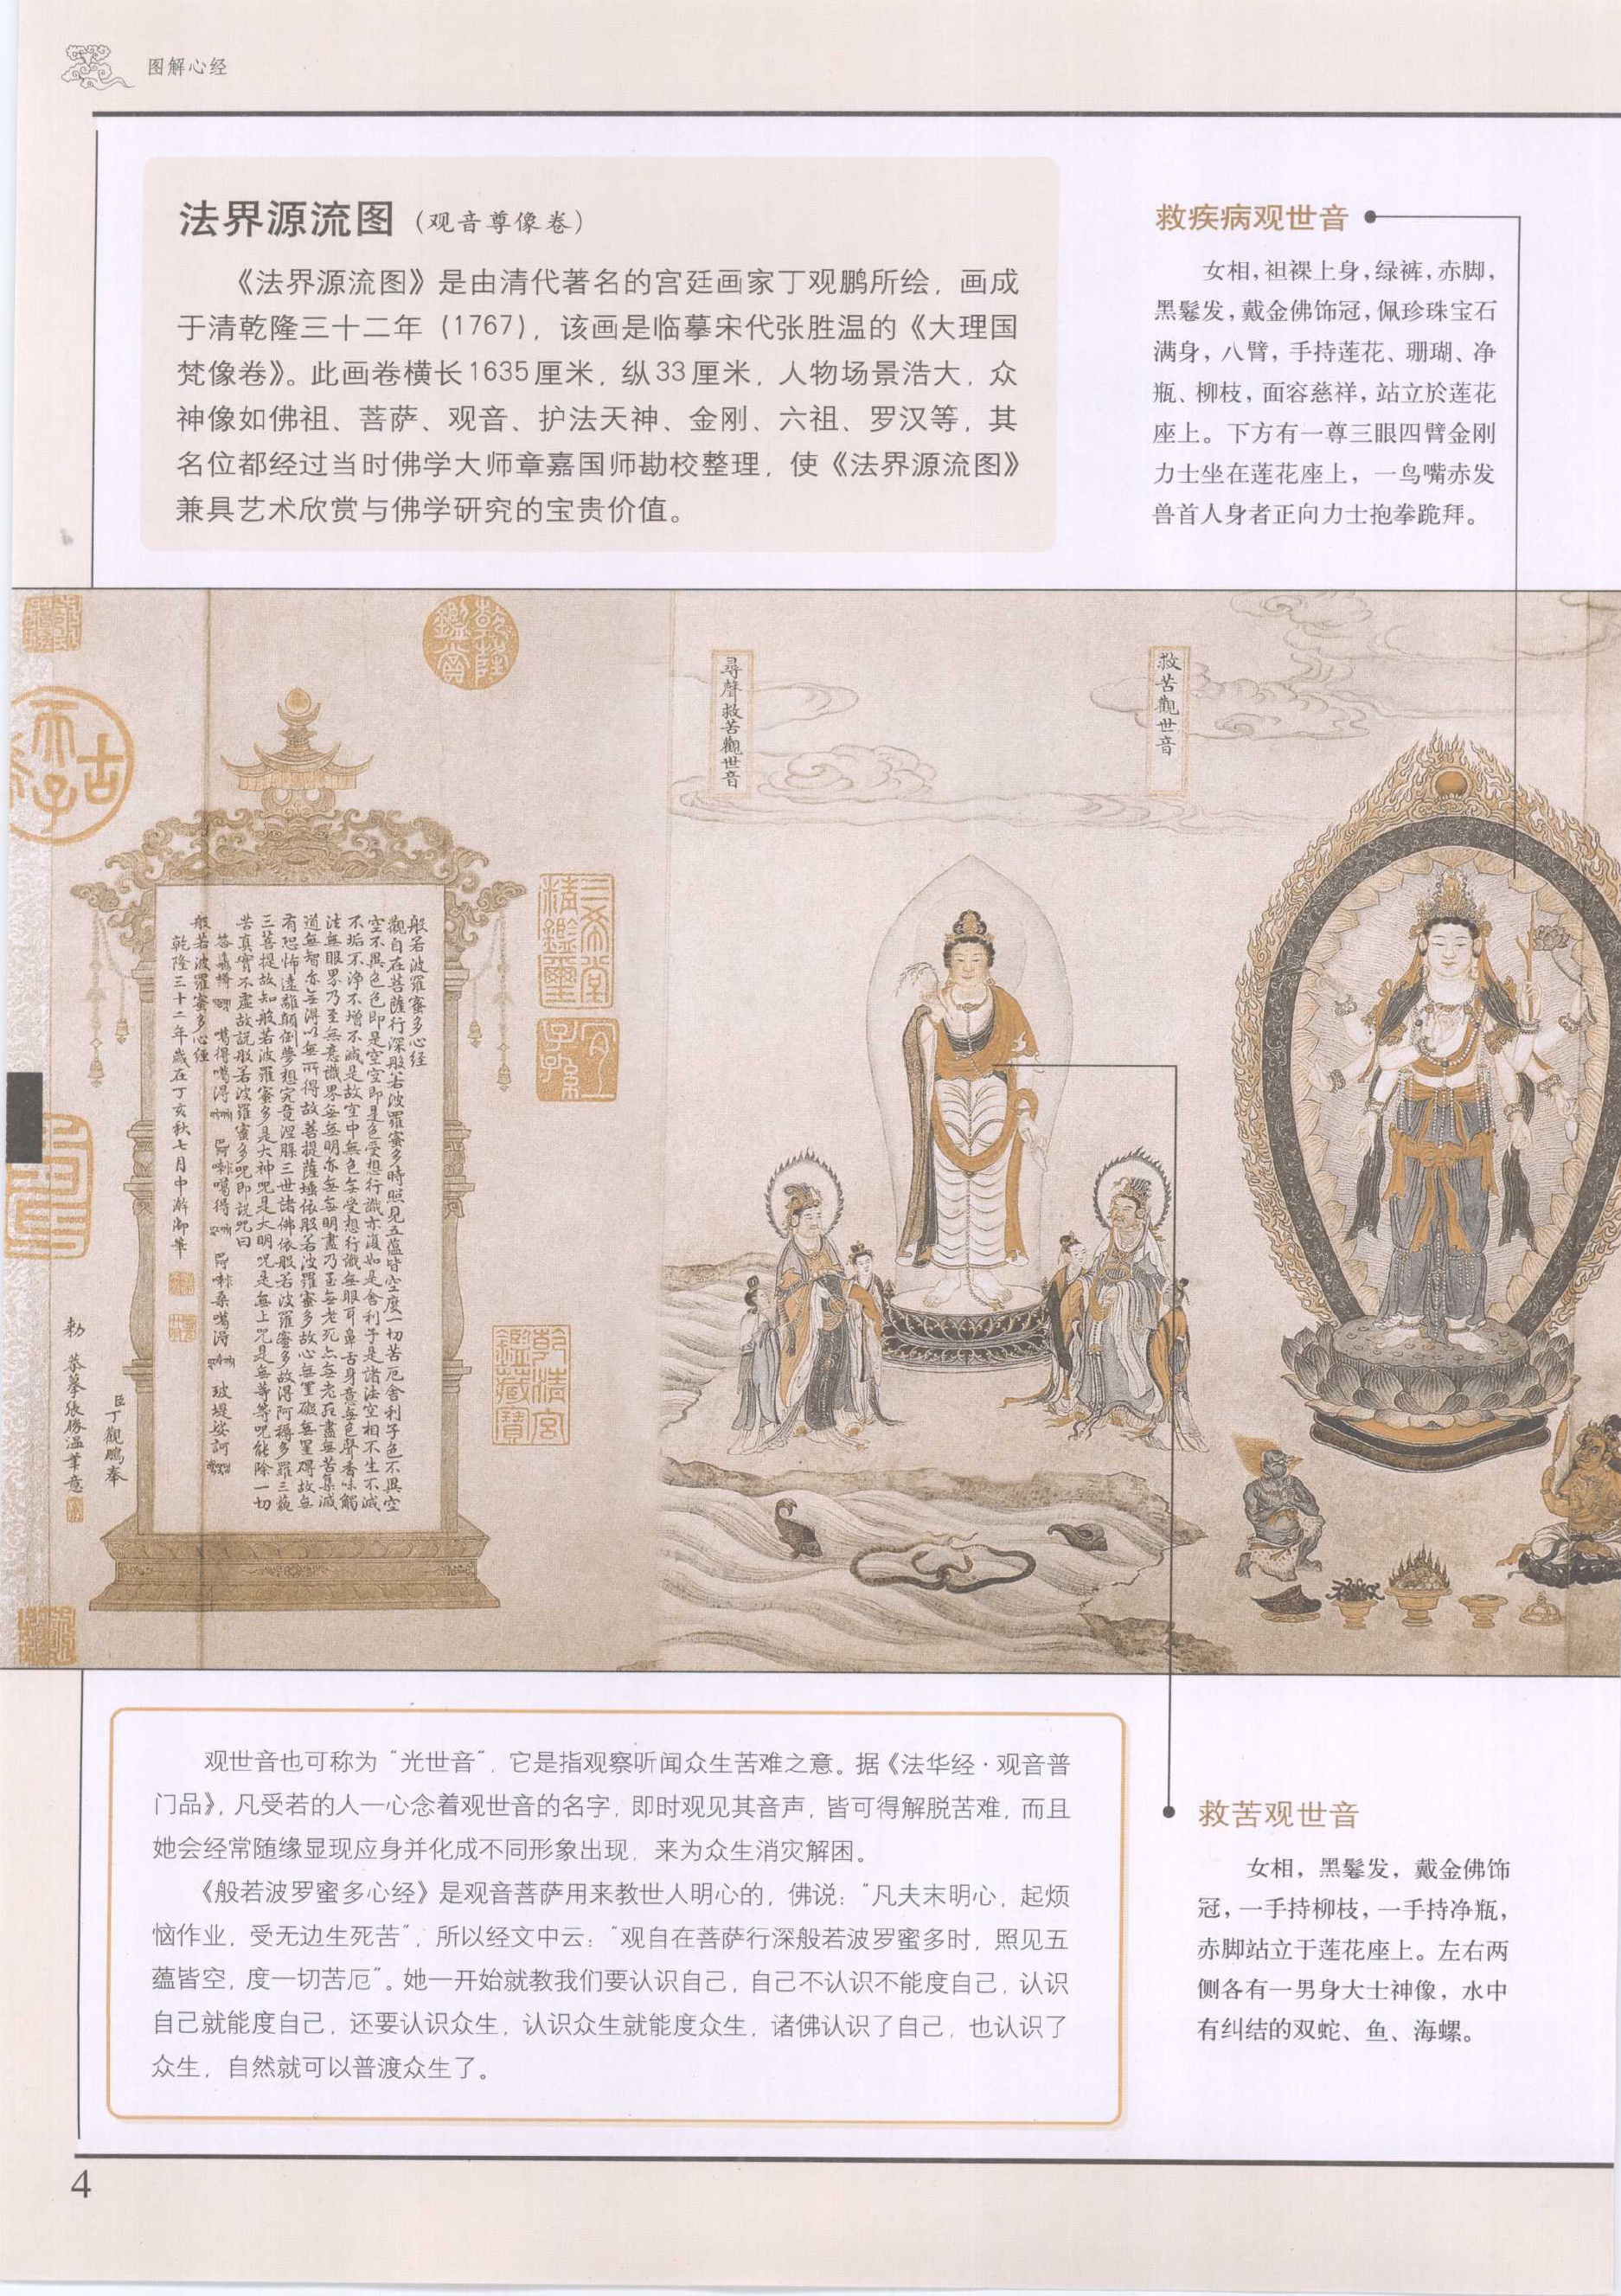 图解心经
法界源流图（观音尊像卷）
《法界源流图》是由清代著名的宫廷画家丁观鹏所绘，画成
于清乾隆三十二年（1767），该画是临摹宋代张胜温的《大理国
梵像卷》。此画卷横长1635厘米，纵33厘米，人物场景浩大，众
神像如佛祖、菩萨、观音、护法天神、金刚、六祖、罗汉等，其
名位都经过当时佛学大师章嘉国师勘校整理，使《法界源流图》
兼具艺术欣赏与佛学研究的宝贵价值。
救疾病观世音
女相，袒裸上身，绿裤，赤脚，
黑鬈发，戴金佛饰冠，佩珍珠宝石
满身，八臂，手持莲花、珊瑚、净
瓶、柳枝，面容慈祥，站立於莲花
座上。下方有一尊三眼四臂金刚
力士坐在莲花座上，一鸟嘴赤发
兽首人身者正向力士抱拳跪拜。
救苦觀世音
尋聲救苦觀世音
乾隆鑑賞
三希堂精鑑璽
宜子孫
乾清宮鑑藏寶
般若波羅蜜多心經
觀自在菩薩行深般若波羅蜜多時照見五蘊皆空度一切苦厄舍利子色不異空
空不異色色即是空空即是色受想行識亦復如是舍利子是諸法空相不生不滅
不垢不淨不增不減是故空中無色無受想行識無眼耳鼻舌身意無色聲香味觸
法無眼界乃至無意識界無無明亦無無明盡乃至無老死亦無老死盡無苦集滅
道無智亦無得以無所得故菩提薩埵依般若波羅蜜多故心無罣礙無罣礙故無
有恐怖遠離顛倒夢想究竟涅槃三世諸佛依般若波羅蜜多故得阿耨多羅三藐
三菩提故知般若波羅蜜多是大神咒是大明咒是無上咒是無等等咒能除一切
苦真實不虛故說般若波羅蜜多咒即說咒曰
般若波羅蜜多心經
乾隆三十二年歲在丁亥秋七月中澣御筆
臣丁觀鵬奉
勅恭摹張勝温筆意
观世音也可称为“光世音”，它是指观察听闻众生苦难之意。据《法华经·观音普
门品》，凡受若的人一心念着观世音的名字，即时观见其音声，皆可得解脱苦难，而且
她会经常随缘显现应身并化成不同形象出现，来为众生消灾解困。
《般若波罗蜜多心经》是观音菩萨用来教世人明心的，佛说：“凡夫未明心，起烦
恼作业，受无边生死苦”，所以经文中云：“观自在菩萨行深般若波罗蜜多时，照见五
蕴皆空，度一切苦厄”。她一开始就教我们要认识自己，自己不认识不能度自己，认识
自己就能度自己，还要认识众生，认识众生就能度众生，诸佛认识了自己，也认识了
众生，自然就可以普渡众生了。
救苦观世音
女相，黑鬈发，戴金佛饰
冠，一手持柳枝，一手持净瓶，
赤脚站立于莲花座上。左右两
侧各有一男身大士神像，水中
有纠结的双蛇、鱼、海螺。
4